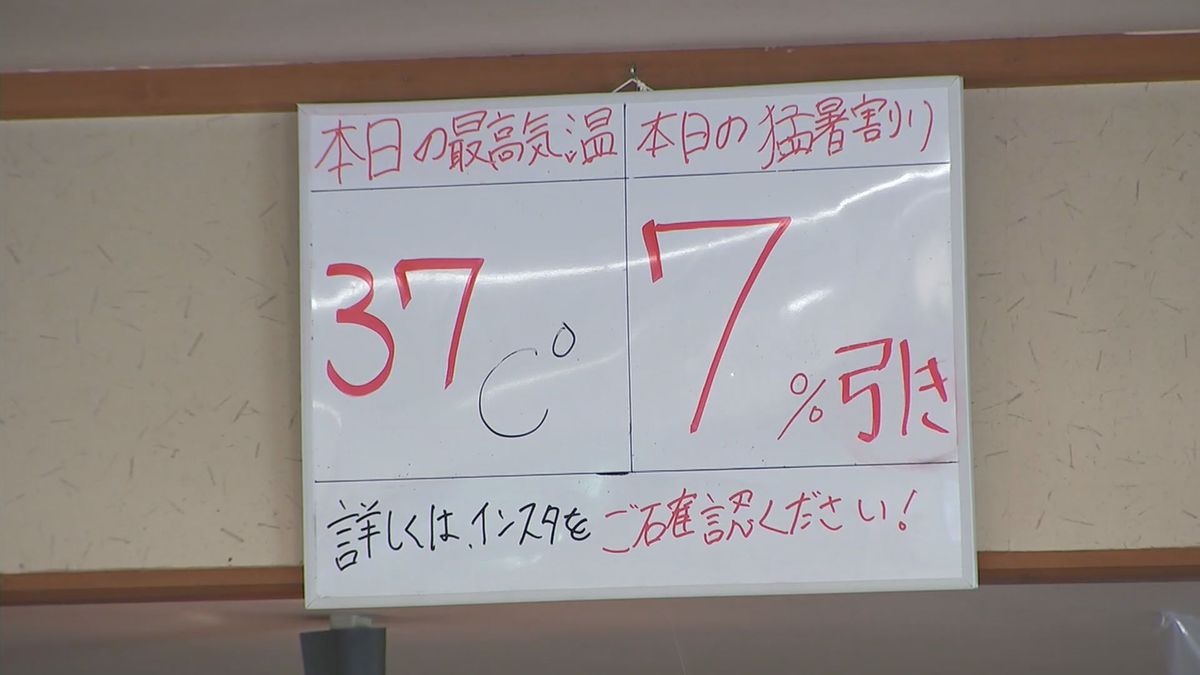 本日の最高気温
37C°
本日の猛暑割り
7%引き
詳しくは、インスタをご確認ください!